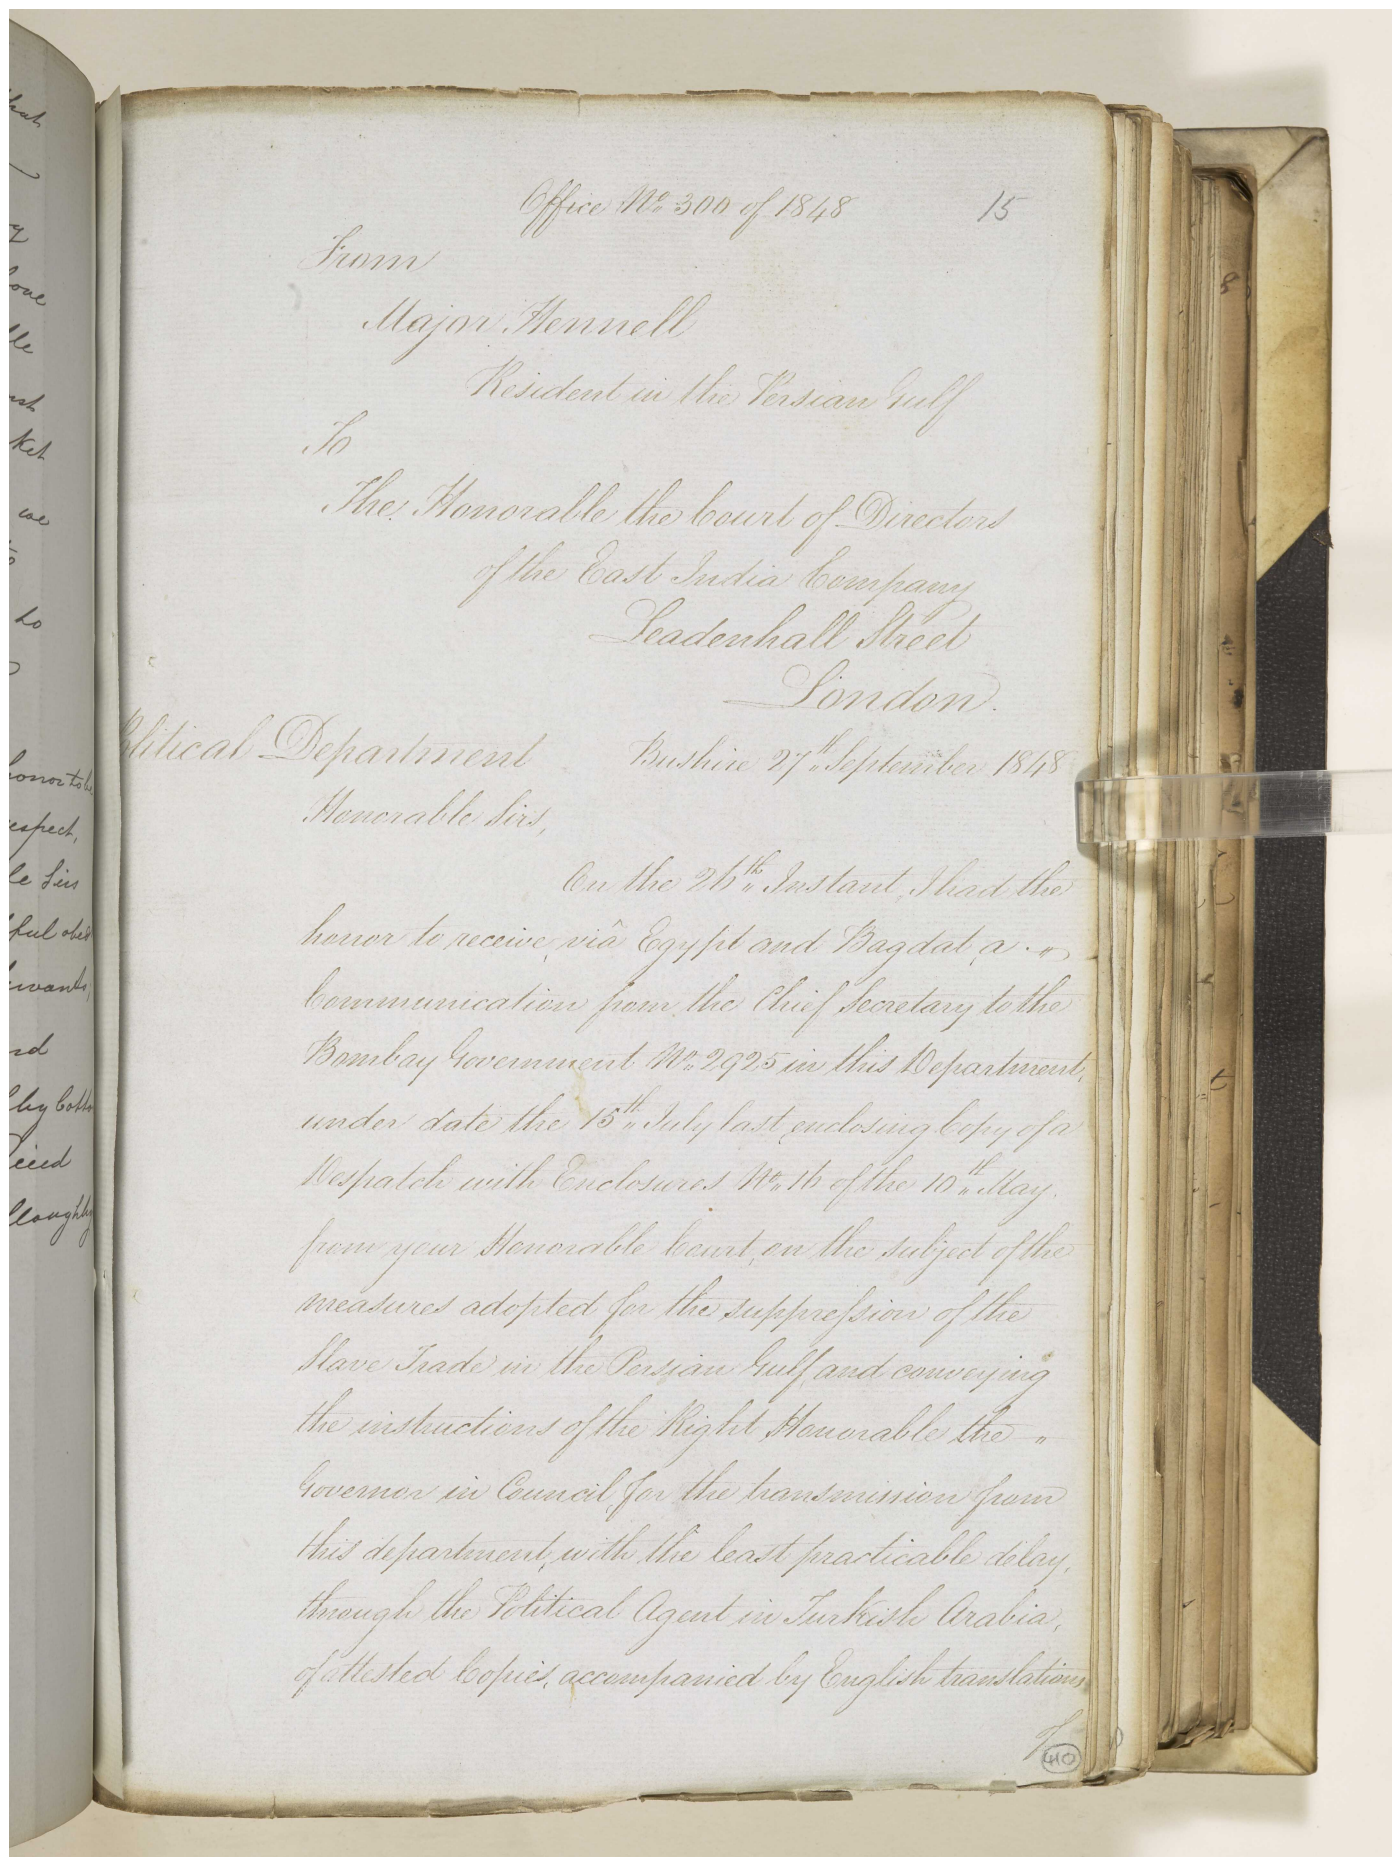 Office No. 300 of 1848 15
From
Major Hennell
Resident in the Persian Gulf
To
The Honorable the Court of Directors
of the East India Company
Leadenhall Street
London.
Political Department Bushire 27th September 1848
Honorable Sirs,
On the 26th Instant, I had the
honor to receive, viâ Egypt and Bagdat, a "
Communication from the Chief Secretary to the
Bombay Government No. 2925 in this Department,
under date the 15th July last, enclosing Copy of a
Despatch with Enclosures No. 16 of the 10th May.
from your Honorable Court, on the subject of the
measures adopted for the suppression of the
Slave Trade in the Persian Gulf, and conveying
the instructions of the Right Honorable the "
Governor in Council, for the transmission from
this department, with the least practicable delay,
through the Political Agent in Turkish Arabia,
of attested Copies, accompanied by English translations
410
hat
ove
le
ket
we
to
honor to be
espect,
le Sirs
ful obed
rvants,
rd
lby Cotto
eied
lloughby